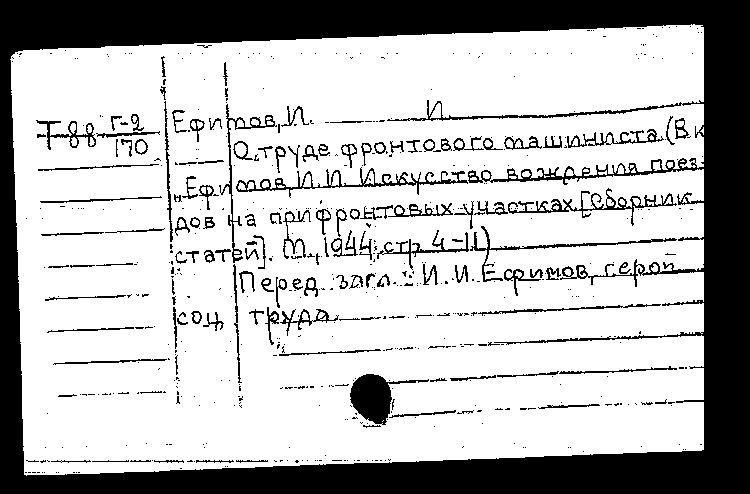 Т 88 Г-2/170
Ефимов, И. И.
О труде фронтового машиниста (В к
„Ефимов, И. И. Искусство вождения поез-
дов на прифронтовых участках [Сборник
статей]. М., 1944, стр. 4-11)
Перед загл.: И. И. Ефимов, герой
соц. труда.